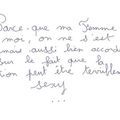 Parce que ma Femme
moi, on ne s'est
mais aussi bien accordé
sur le fait que la
tion peut être terrible
sexy
...